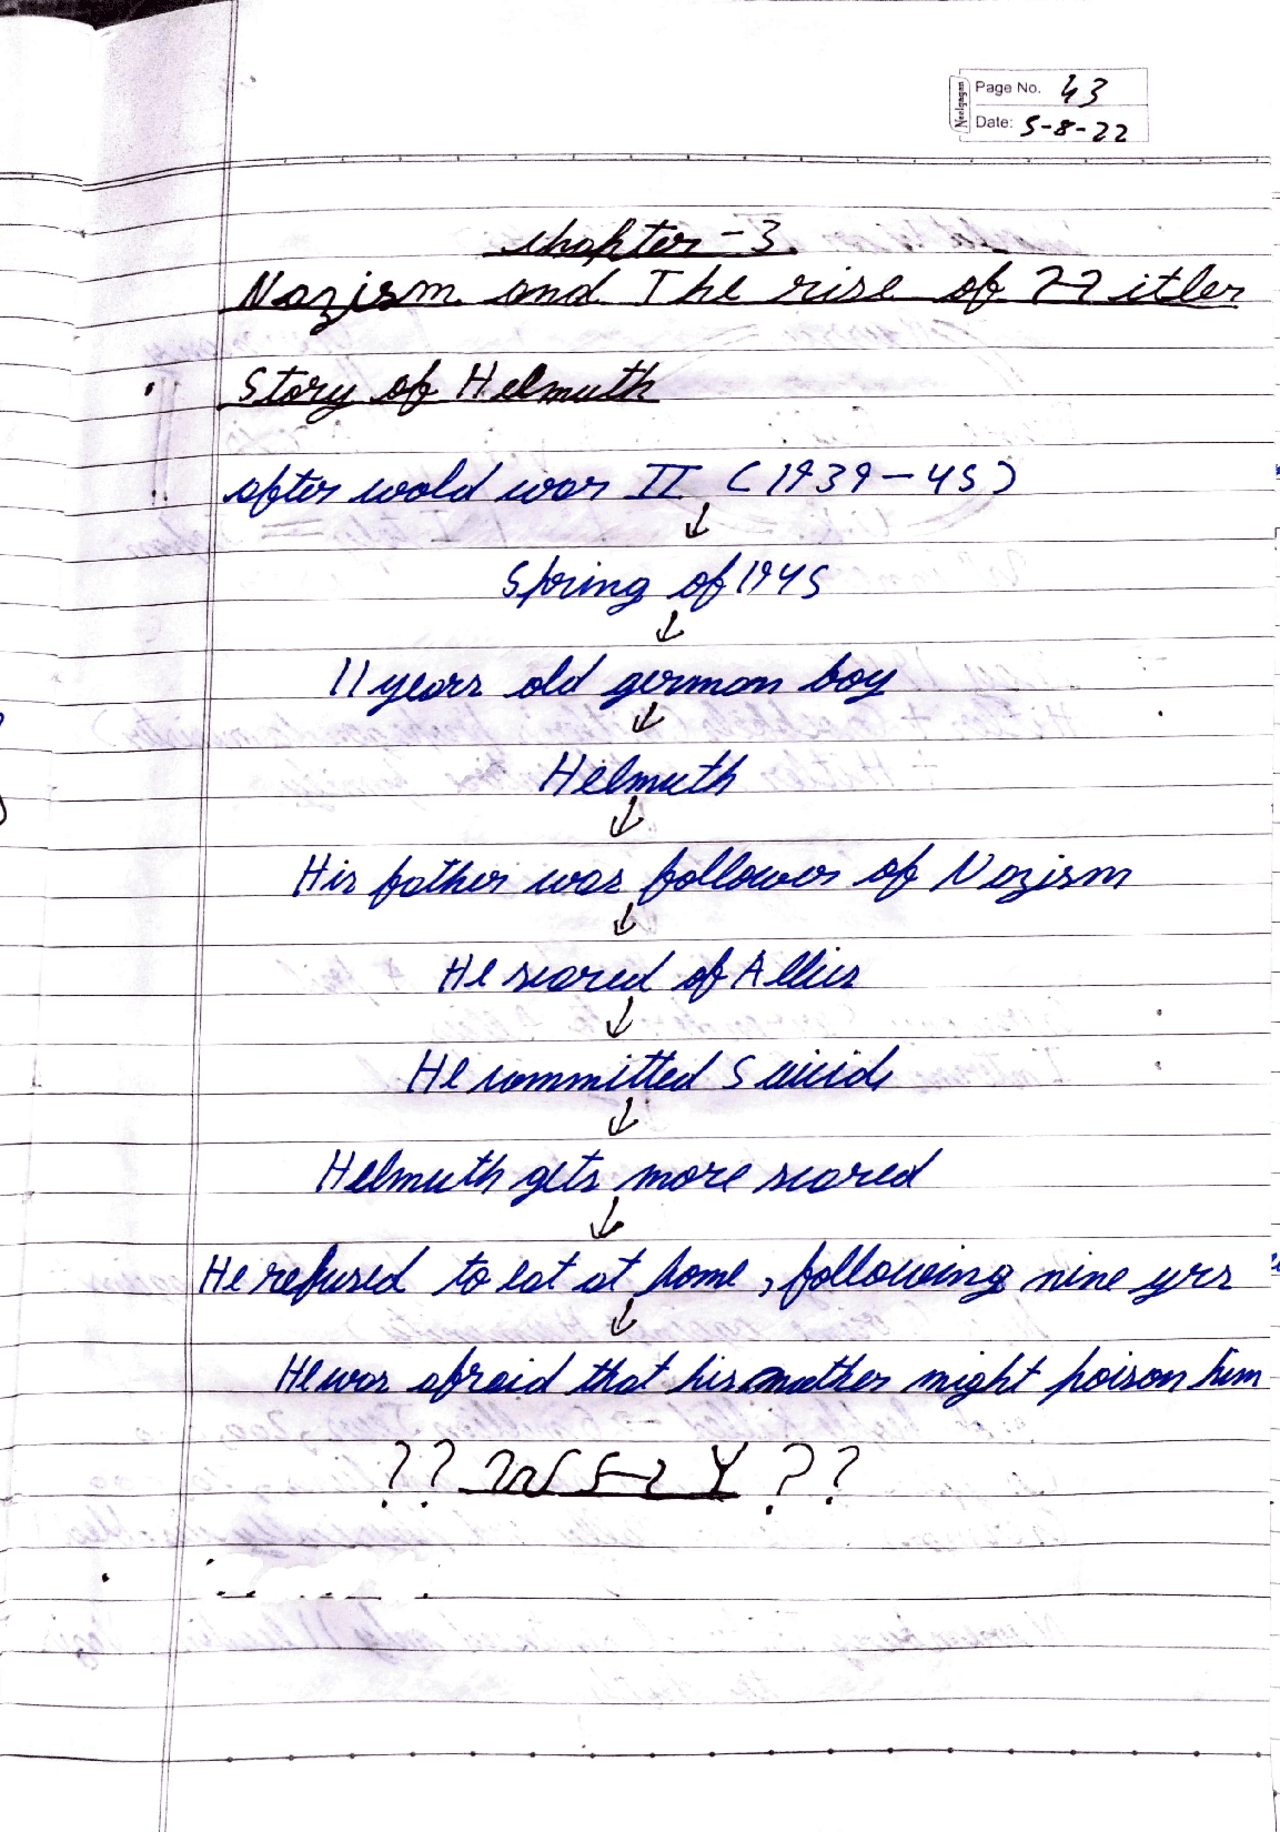 Neelgagan
Page No. 43
Date: 5-8-22
chapter-3.
Nazism and The rise of Hitler
Story of Helmuth
after wold war II (1939-45)
↓
Spring of 1945
↓
11 years old german boy
↓
Helmuth
↓
His father was follower of Nazism
↓
He scared of Allies
↓
He committed Suicide
↓
Helmuth gets more scared
↓
He refused to eat at home, following nine yrs
↓
He was afraid that his mother might poison him
?? WHY ??